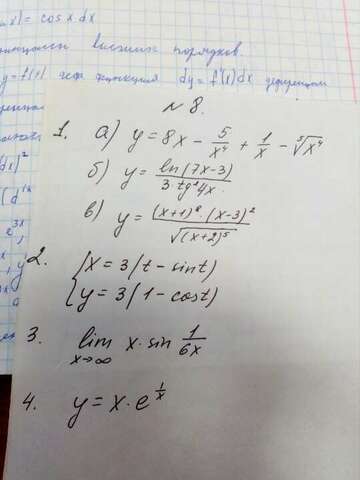 cos x dx
высших порядков
y = f(x) функция dy = f'(x)dx
№ 8.
1. а) y = 8x - 5/x⁴ + 1/x - ⁵√x⁴
б) y = ln(7x-3) / 3·tg²4x
в) y = (x+1)⁸·(x-3)² / √(x+2)⁵
2. { x = 3(t - sint)
{ y = 3(1 - cost)
3. lim x→∞ x·sin 1/6x
4. y = x·e^(1/x)